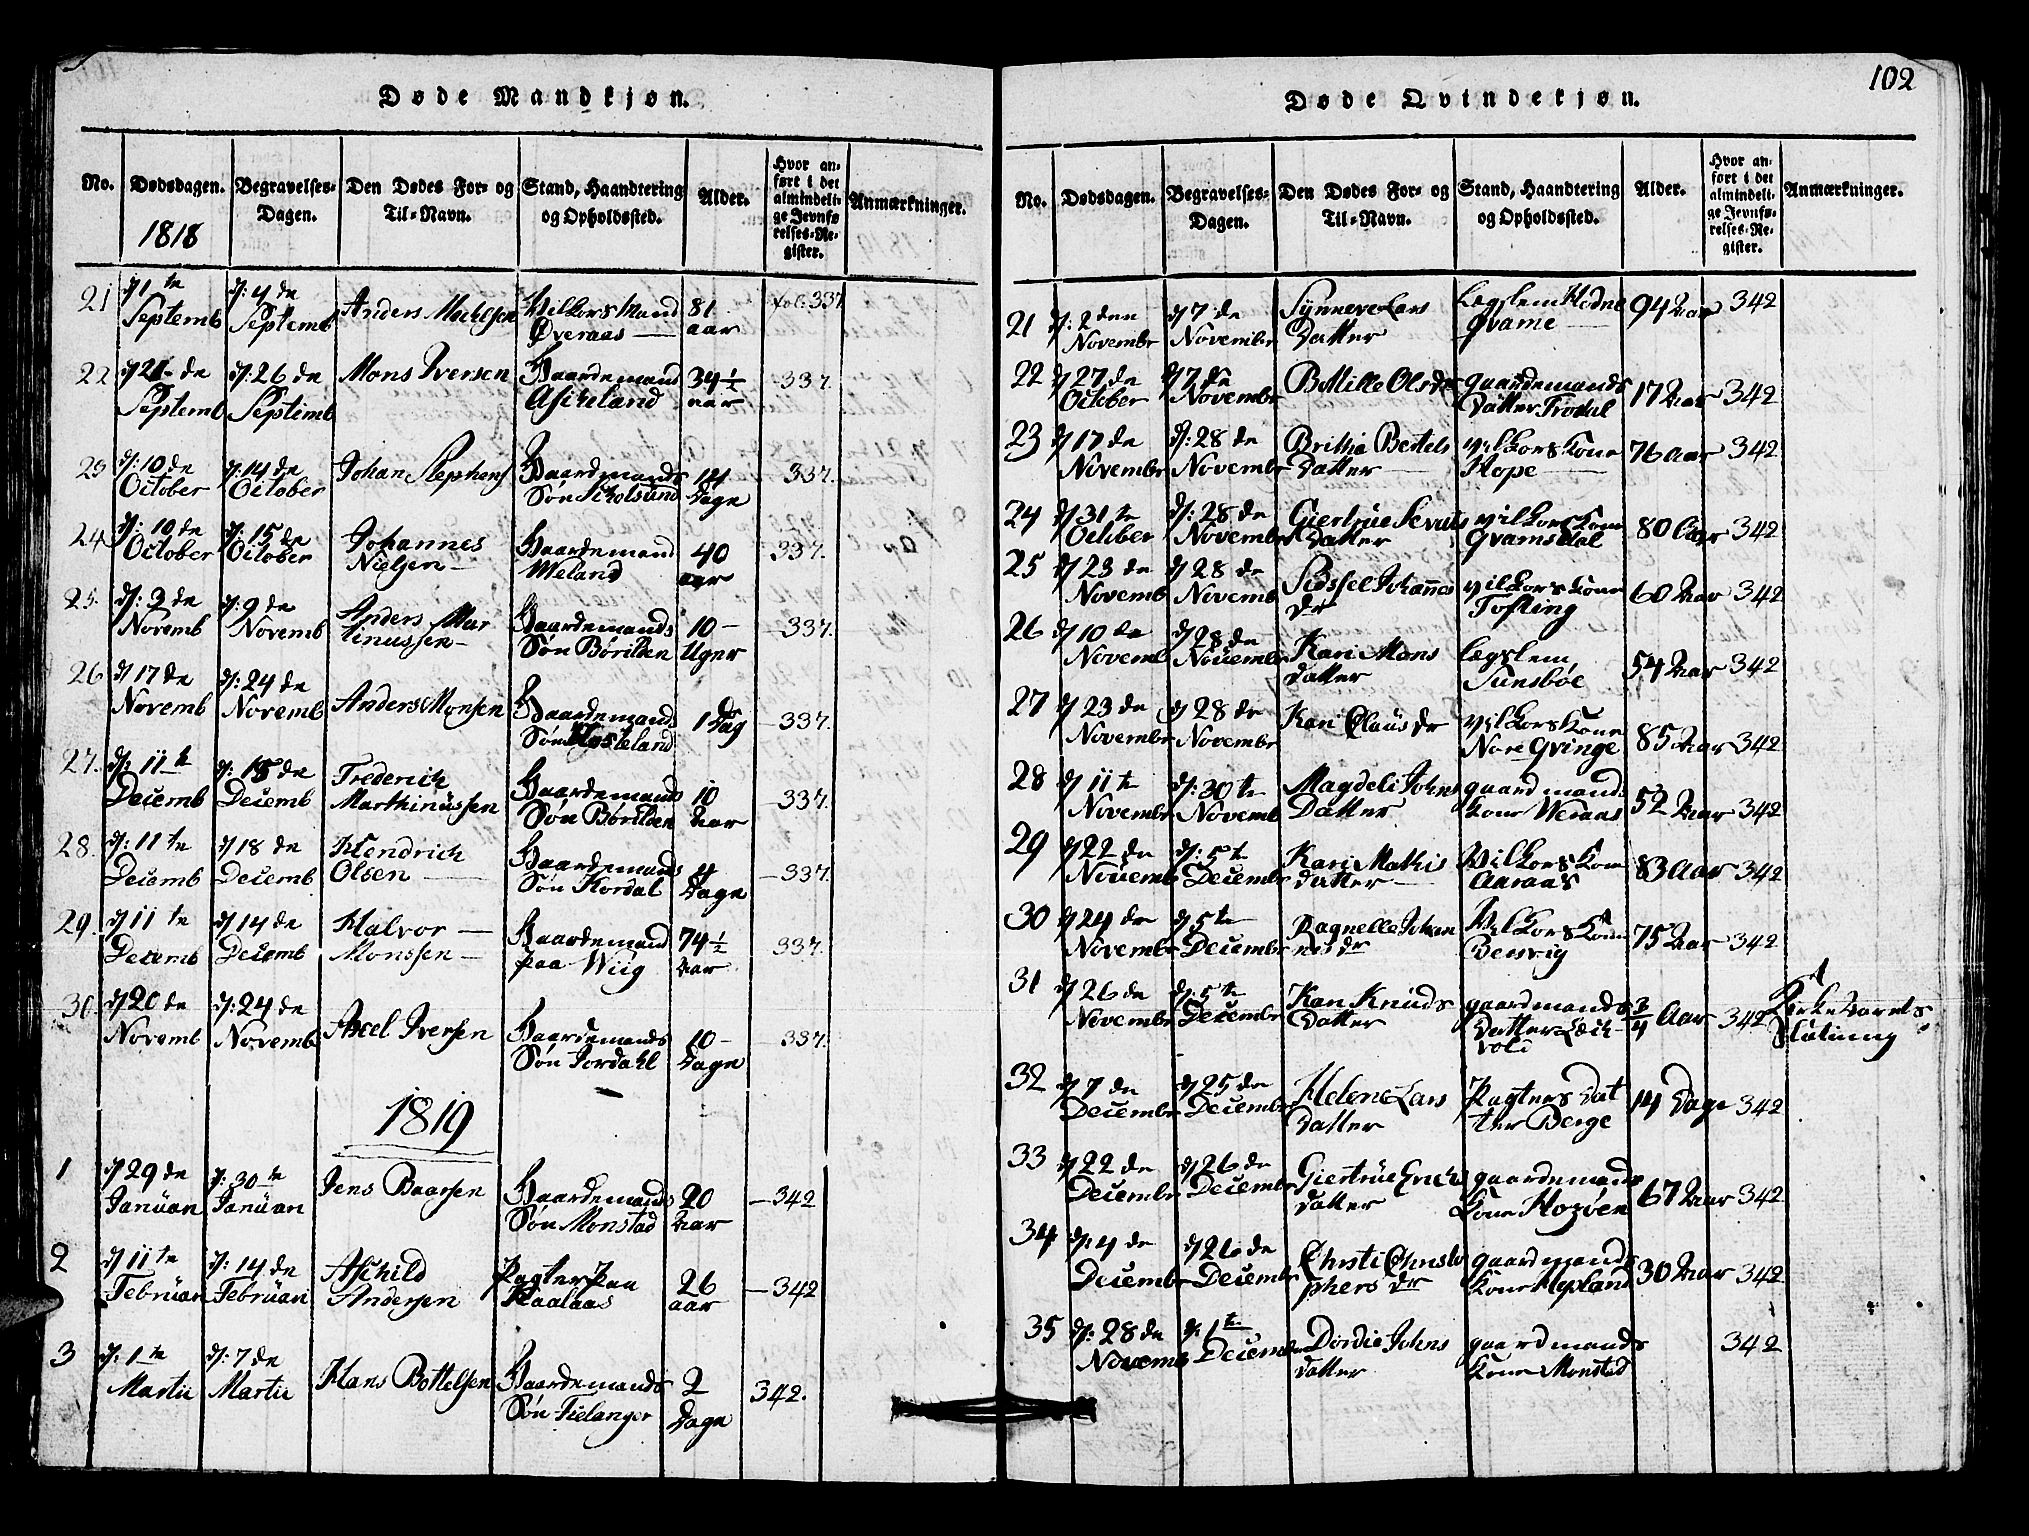 Døde Mandkjøn.
No. Dødsdagen. Begravelses-Dagen. Den Dødes For- og Til-Navn. Stand, Haandtering og Opholdssted. Alder. Hvor anført i det almindelige Jevnførelses-Register. Anmærkninger.
1818
21 d 1te Septemb d: 4 de Septemb Anders Vilkors Mand Øveraas 81 aar fol: 337
22 d 21 de Septemb d: 26 de Septemb Mons Iversen Gaardemand 34 1/2 aar 337.
23 d: 10 de October d: 14 de October Johan Gaardmands Søn 14 Dage 337.
24 d: 10 de October d: 15 de October Johannes Nielsen Gaardemand Weland 40 aar 337.
25. d: 3 de Novemb d: 9 de Novemb Anders Martinussen Gaardemands Søn Børilden 10 Uger 337.
26 d 17 de Novemb d: 24 de Novemb Anders Monsen Gaardemands Søn 1 Dag 337.
27. d: 11te Decemb d: 18 de Decemb Frederich Marthinussen Gaardemands Søn Børilden 10 Aar 337.
28. d: 11te Decemb d 18 de Decemb Hendrich Olsen Gaardemands Søn 4 Dage 337.
29. d 11 te Decemb d 14 de Decemb Halvor Monssen Gaardemand paa Wiig 74 1/2 Aar 337.
30. d 20 de Novemb d: 24 de Novemb Axel Iversen Gaardemands Søn Fordahl 10 Dage 337.
1819
1 d 29 de Januari d: 30te Januari Jens Baarsen Gaardemands Søn Monstad 20 Aar 342
2 d 11te Februari d: 14 de Februari Aschild Andersen Pagter paa 26 aar 342
3 d: 1te Martii d: 7 de Martii Hans Bottelsen Gaardemands Søn Fielanger 2 Dage 342.
102
Døde Qvindekjøn.
No. Dødsdagen. Begravelses-Dagen. Den Dødes For- og Til-Navn. Stand, Haandtering og Opholdssted. Alder. Hvor anført i det almindelige Jevnførelses-Register. Anmærkninger.
21 d: 2den Novembr d 7 de Novembr Synneve Lars Datter Lægslem Qvame 94 Aar 342
22 d 27 de October d 7 de Novembr Bottille Olsdr gaardemands Datter Trodal 17 Aar 342
23 d 17 de Novembr d: 28 de Novembr Britha Bertels Datter vilkors Kone Hope 76 aar 342
24 d 31te October d: 28 de Novembr Giertrue Datter vilkors Kone Qvamsdal 80 Aar 342
25 d 23 de Novemb d 28 de Novemb Sidssel Johannes dr vilkors Kone Tofting 60 Aar 342
26 d 10 de Novemb d 28 de Novembr Kari Mons datter Lægslem 54 Aar 342
27 d 23 de Novembr d 28 de Novembr Kari Claus dr vilkors Kone Nore Qvinge 85 Aar 342
28 d 11te Novembr d: 30te Novemb Magdeli Johns Datter gaardmands Kone Weraas 52 Aar 342
29 d 22 de Novemb d: 5te Decembr Kari Mathis datter Vilkors Kone Aaraas 83 Aar 342
30 d 24 de Novembr d 5te Decembr Ragnelle Johannes dr Vilkors Kone Bersvig 75 Aar 342
31 d 26 de Novembr d: 5te Decembr Kari Knuds Datter gaardmands Datter 3/4 Aar 342
32 d 7 de Decembr d 25 de Decembr Helene Lars Datter Pagters Datter Berge 14 Dage 342
33 d 22 de Decembr d 26 de Decembr Giertrue Erichs datter gaardemands Kone Hozøen 67 Aar 342
34 d: 4 de Decembr d 26 de Decembr Christi Christophers dr gaardmands Kone 30 Aar 342
35 d: 28 de Novemb d: 1te Decembr Dordie Johns datter gaardmands Kone Monstad 342